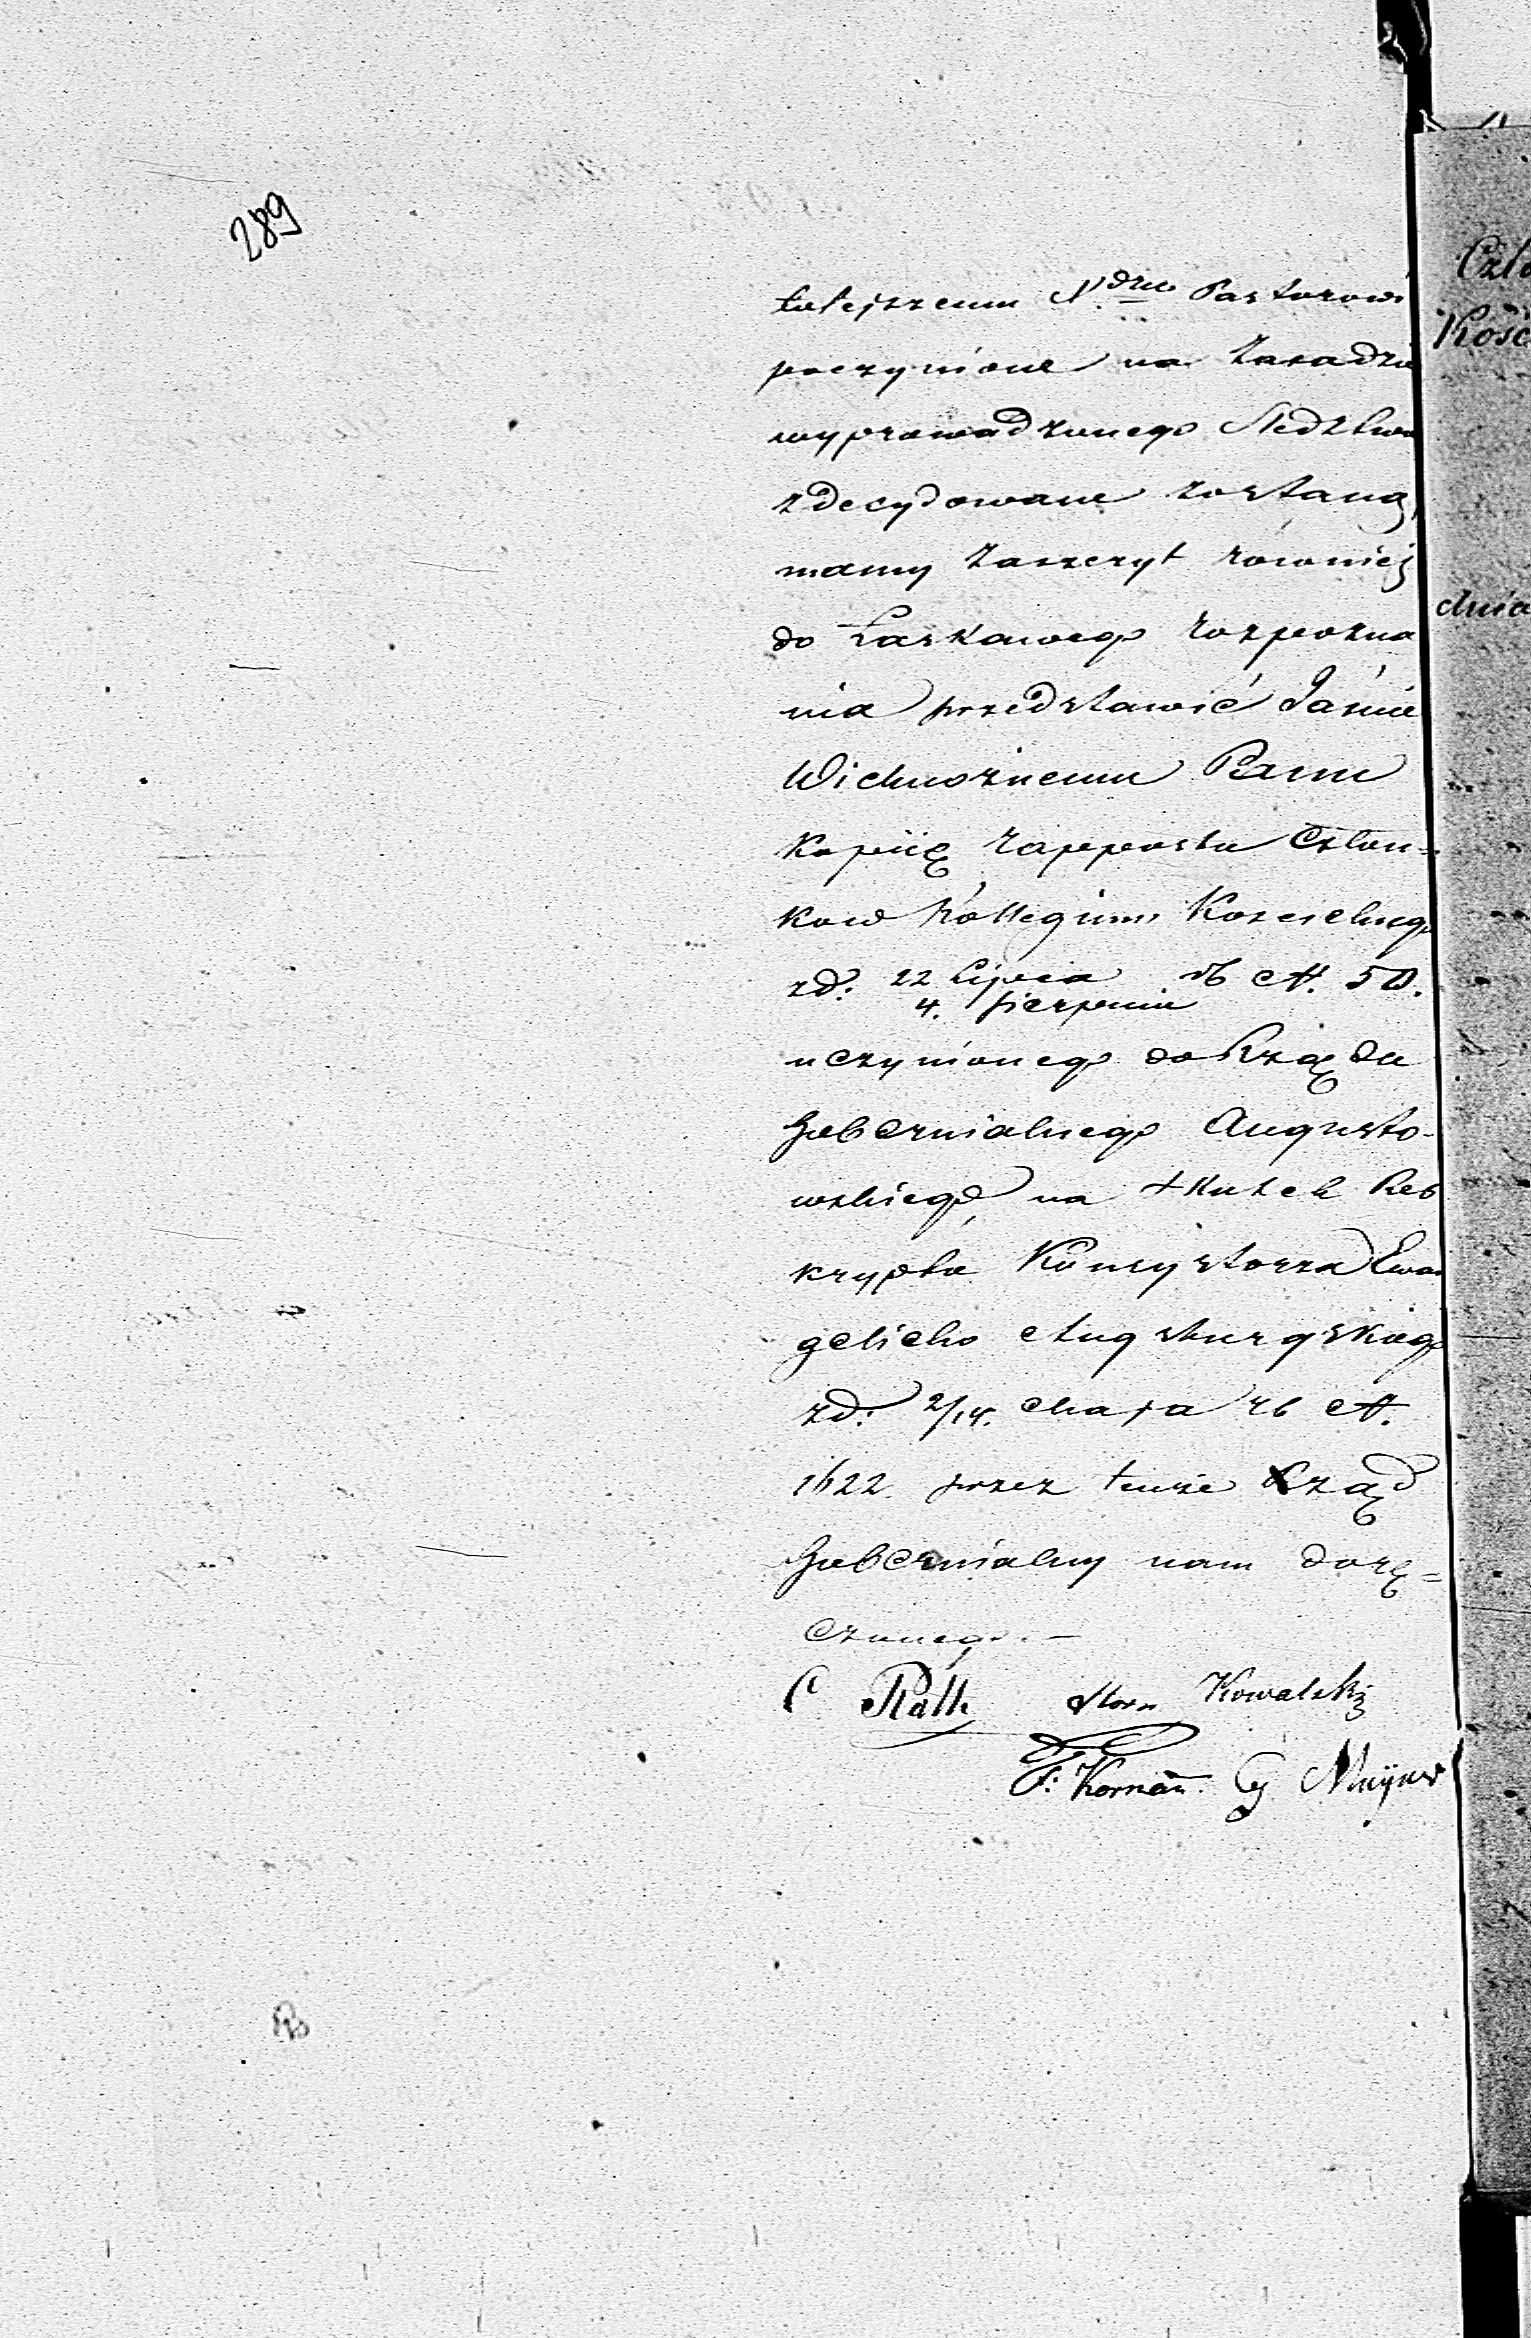 289
tutejszemu N. dzu Pastorowi
poczynione na Zasadzie
wyprowadzonego Sledztwa
zdecydowane zostaną,
mamy Zaszczyt rówmiej
do Łaskawego rozpozna
nia przedstawić Jaśnie
Wielmożnemu Panu
Kopiię rapportu Człon=
kow Kollegium Koscielnego
zd: 22 Lipca rb N. 50.
4. Sierpnia
uczynionego do Rządu
Gubernialnego Augusto-
wskiego na skutek Res
kryptu Konsystorza Ewan
gelicko Augsburgskiego
zd: 2/14. Maja rb N.
1622. przez tenże Rząd
Gubernialny nam dorę=
czonego.—
C Rath Kowalski
F. Korman.
Czło
Kośc
dnia